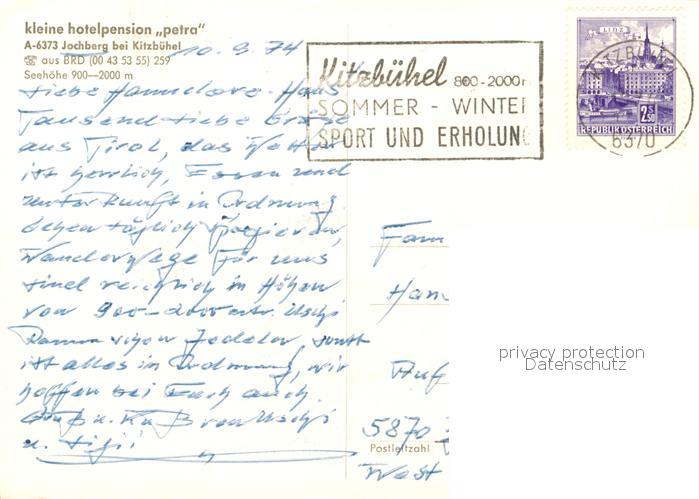 kleine hotelpension „petra“
A-6373 Jochberg bei Kitzbühel
☎ aus BRD (00 43 53 55) 259
Seehöhe 900—2000 m
10. 9. 74
Kitzbühel 800-2000m
SOMMER - WINTER
SPORT UND ERHOLUNG
LINZ
2S 50
REPUBLIK ÖSTERREICH
KITZBÜHEL
6370
Liebe Hannelore - Hans
Tausend liebe Grüße
aus Tirol, das Wetter
ist herrlich, Essen und
Unterkunft in Ordnung.
Gehen täglich spazieren,
Wanderwege für uns
sind reichlich in Höhen
von 900-2000 mtr. Uschi
kann schon Jodeln, sonst
ist alles in Ordnung, wir
hoffen bei Euch auch.
Gruß u. Kuß von Uschi
u.
Fam
Han
Auf
5870
Postleitzahl
West
privacy protection
Datenschutz